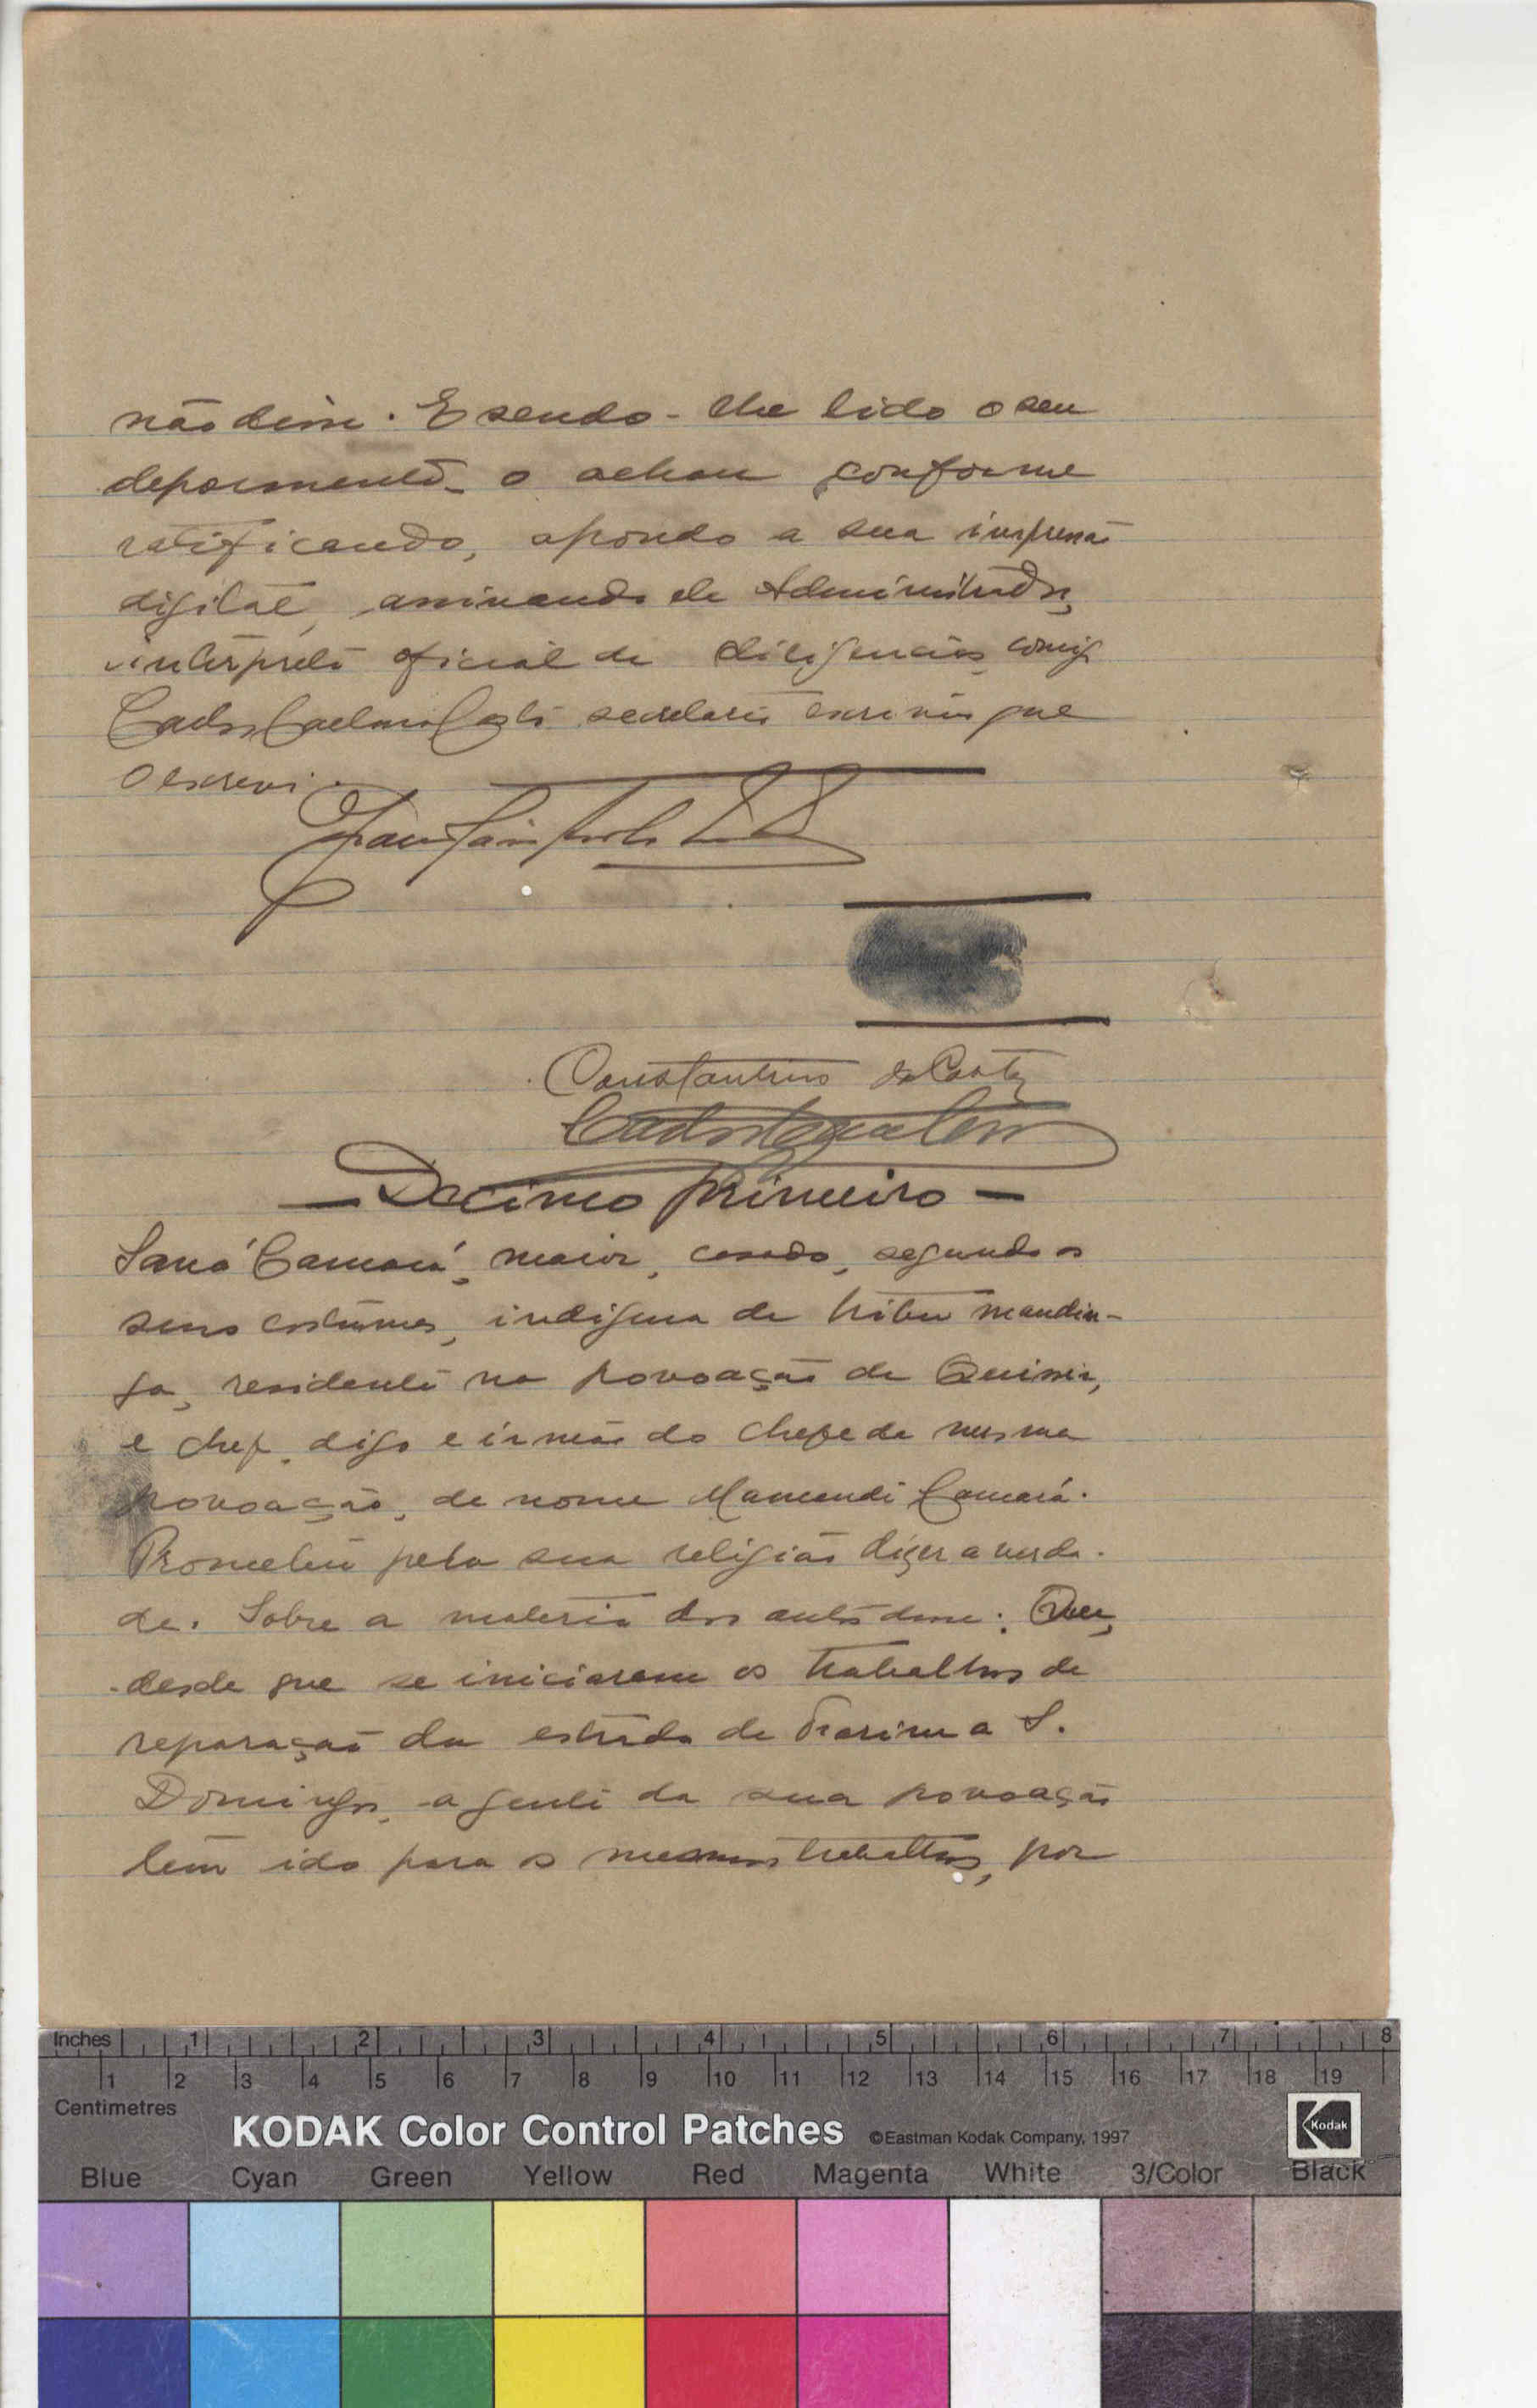 não disse. E sendo-lhe lido o seu
depoimento o achou conforme
ratificando, apondo a sua impressão
digital, assinando ele Administrador,
intérprete oficial de diligencias comigo
secretario escrivão que
o escrevi.
Constantino da Costa
— Decimo primeiro —
Saná Camará, maior, casado, segundo os
seus costumes, indigena da tribu mandin-
ga, residente na povoação de
e chefe, digo e irmão do chefe da mesma
povoação, de nome Mamendi Camará.
Prometeu pela sua religião dizer a verda-
de. Sobre a materia dos autos disse: Que,
desde que se iniciaram os trabalhos de
reparação da estrada de Farim a S.
Domingos, a gente da sua povoação
tem ido para os mesmos trabalhos, por
Inches 1 2 3 4 5 6 7 8
1 2 3 4 5 6 7 8 9 10 11 12 13 14 15 16 17 18 19
Centimetres
KODAK Color Control Patches ©Eastman Kodak Company, 1997 Kodak
Blue Cyan Green Yellow Red Magenta White 3/Color Black